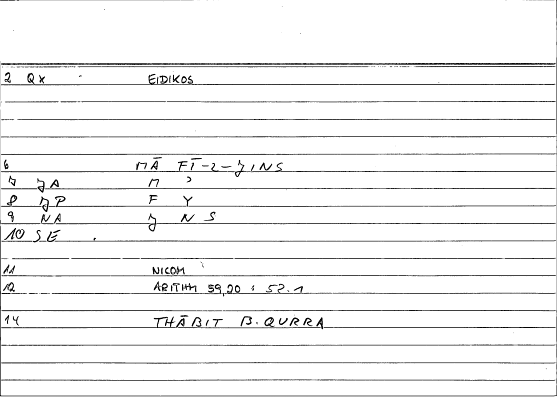 2 QX EIDIKOS
6 MĀ FĪ-L-ǦINS
7 ǦA M ʾ
8 ǦP F Y
9 NA Ǧ N S
10 SE .
11 NICOM
12 ARITHM 59,20 : 52.1
14 THĀBIT B. QURRA